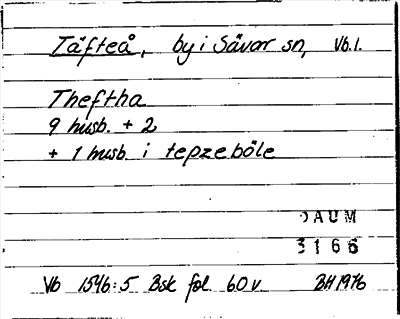 Täfteå, by i Sävar sn, Vb.l.
Theftha
9 husb. + 2
+ 1 husb. i tepzeböle
DAUM
3166
Vb 1546:5 Bsk fol. 60 v BH 1976